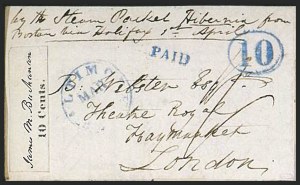 by the Steam Packet Hibernia from
Boston via Halifax 1st April
PAID
10
MAR
B. Webster Esqr
Theatre Royal
Haymarket
London
James M. Buchanan
10 Cents.